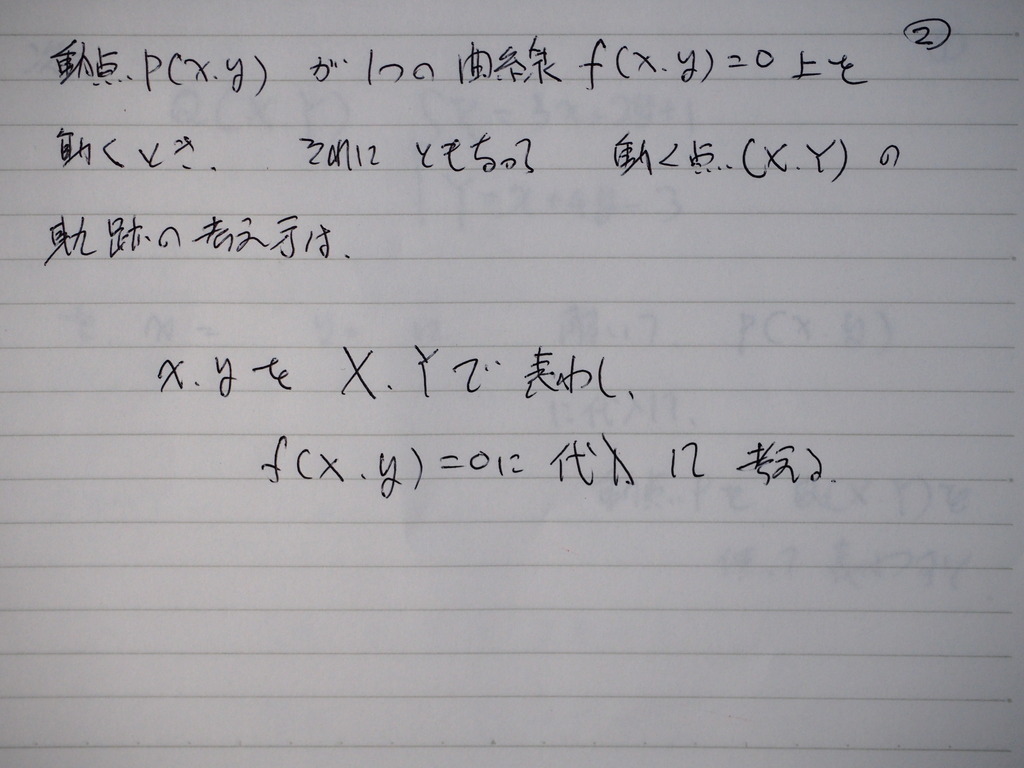 ②
動点P(x.y) が 1つの曲線 f(x.y)=0 上を
動くとき. それに ともなって 動く点(X.Y) の
軌跡の考え方は.
x.yを X.Yで 表わし、
f(x.y)=0に 代入して 考える.